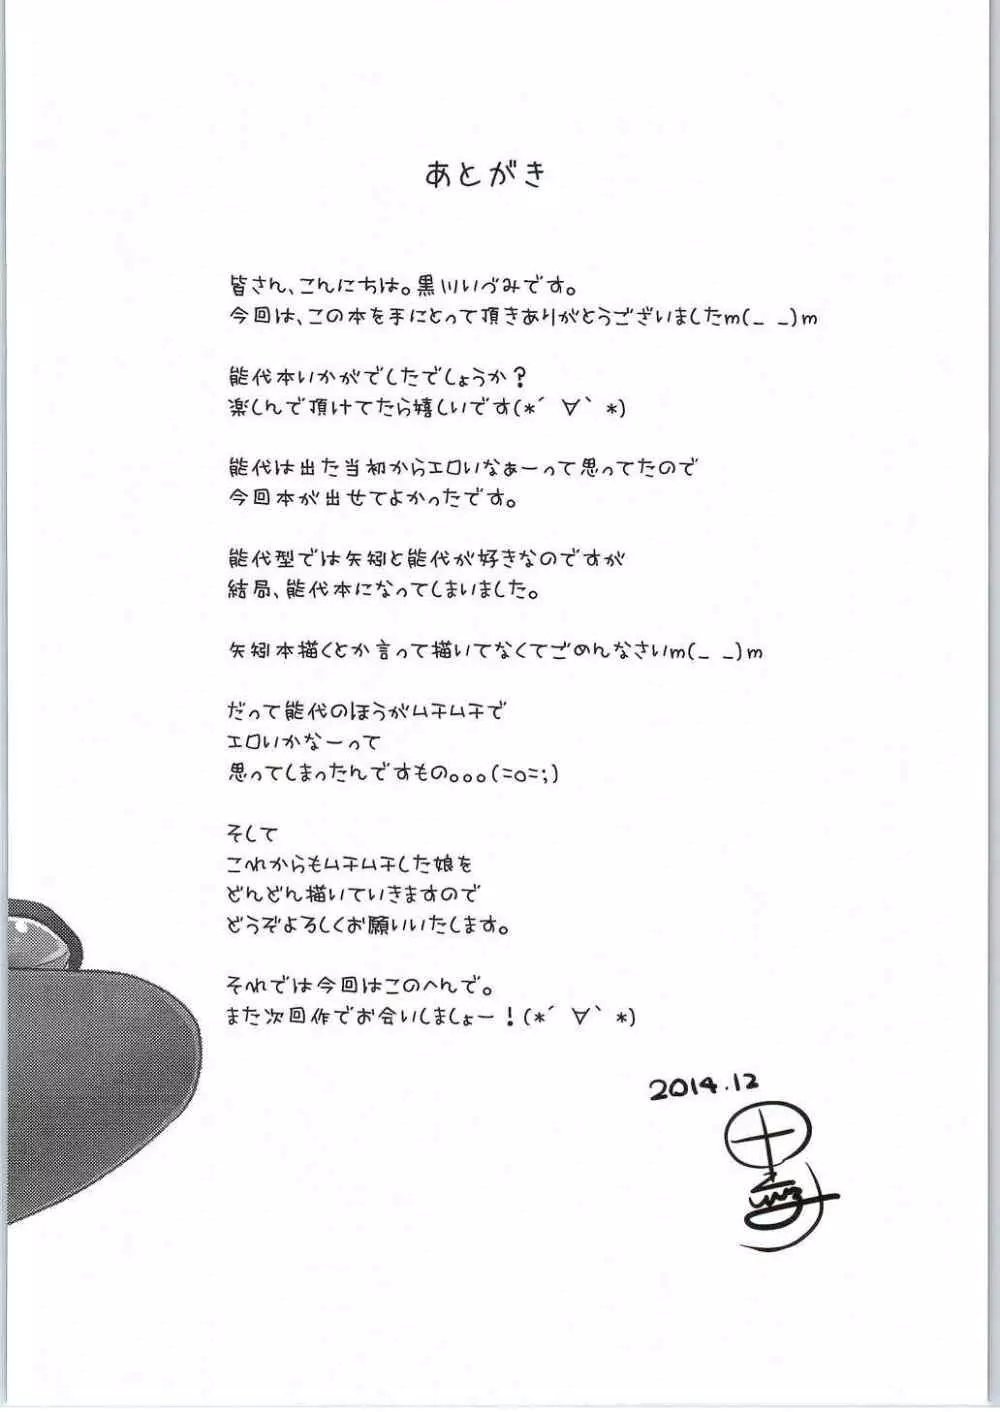 あとがき
皆さん、こんにちは。黒川いづみです。
今回は、この本を手にとって頂きありがとうございましたm(_ _)m
能代本いかがでしたでしょうか?
楽しんで頂けてたら嬉しいです(*´ ∀` *)
能代は出た当初からエロいなぁーって思ってたので
今回本が出せてよかったです。
能代型では矢矧と能代が好きなのですが
結局、能代本になってしまいました。
矢矧本描くとか言って描いてなくてごめんなさいm(_ _)m
だって能代のほうがムチムチで
エロいかなーって
思ってしまったんですもの。。。(=o=;)
そして
これからもムチムチした娘を
どんどん描いていきますので
どうぞよろしくお願いいたします。
それでは今回はこのへんで。
また次回作でお会いしましょー!(*´ ∀` *)
2014.12